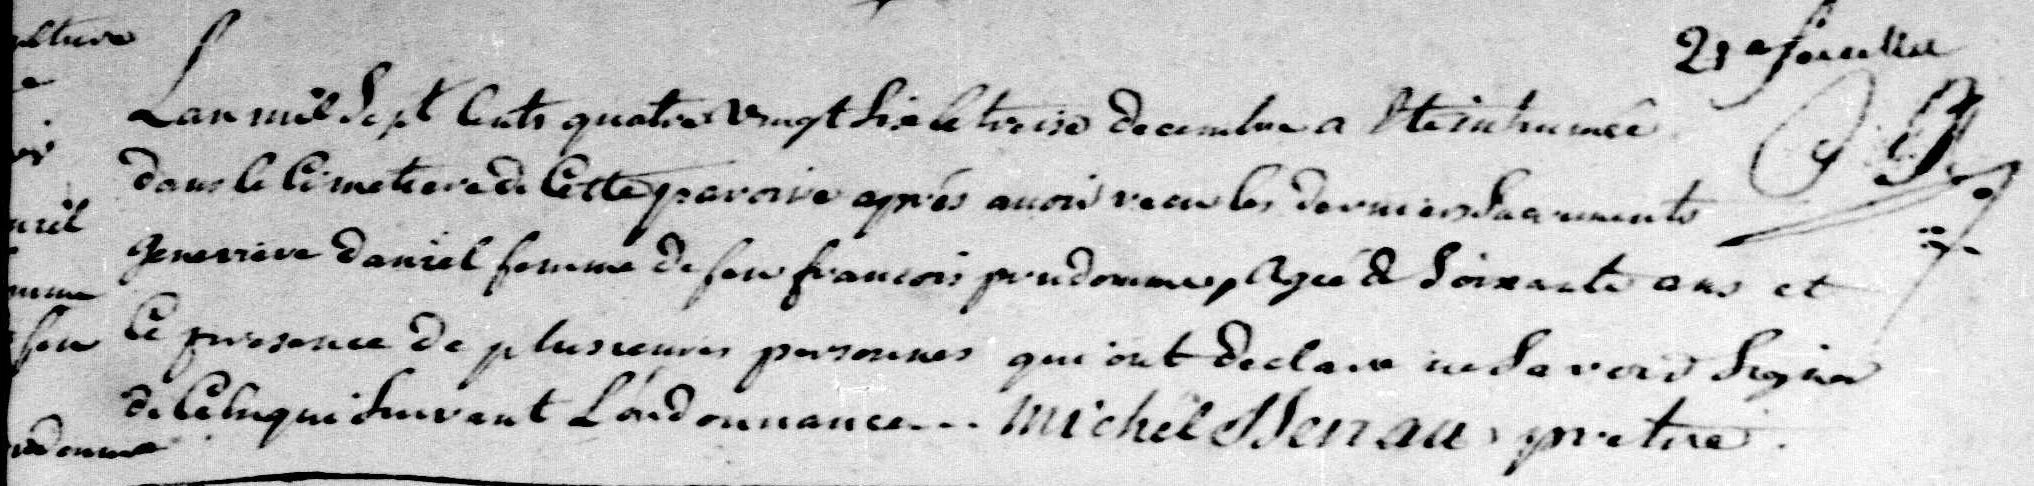 21e feuillet
L'an mil Sept Cents quatre Vingt Six le treise decembre a Eté inhumée
dans le Cimetiere de Cette paroise après avoir recu les derniers Sacrements
genevieve daniel femme de feu francois prudomme, Agée de Soixante ans et
Ce presence de plusieurs personnes qui ont declare ne Savoir Signer
de Ce Suivant L'ordonnance... Michel pretre.